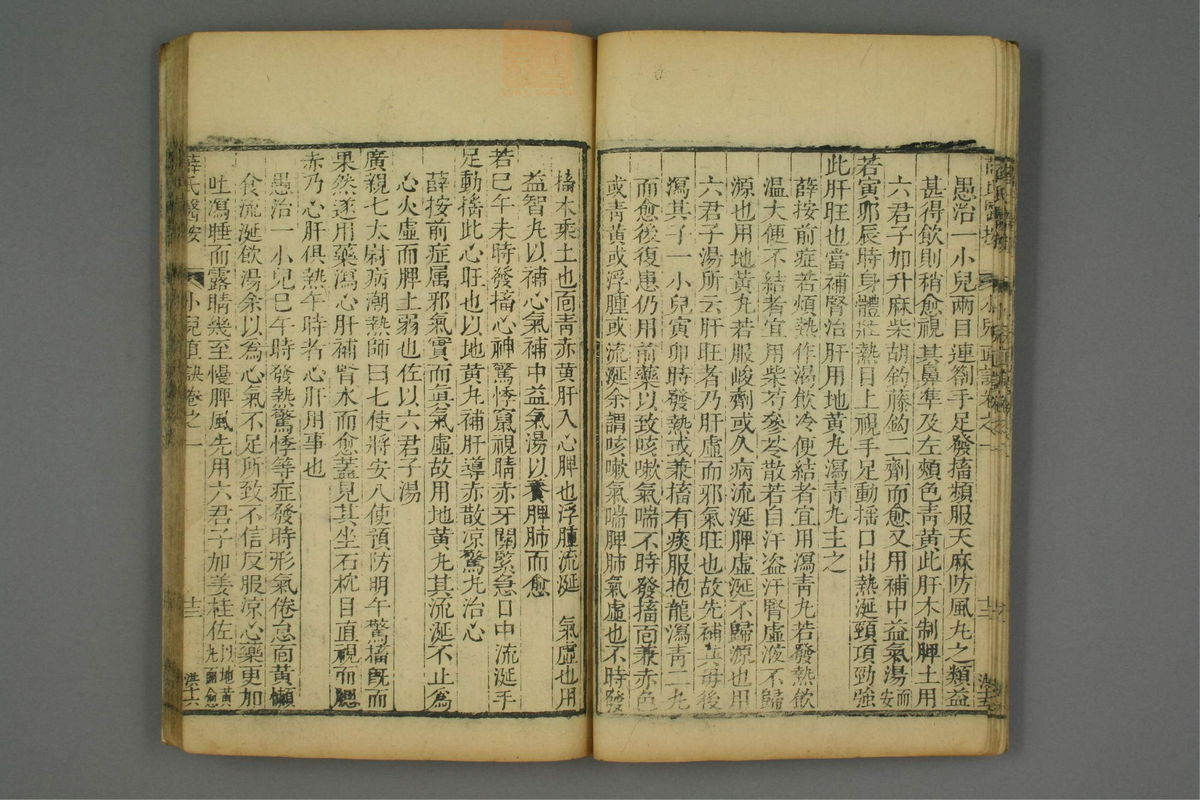 愚治一小兒兩目連劄手足發搐頻服天麻防風丸之類益
甚得飲則稍愈視其鼻準及左頰色青黃此肝木制脾土用
六君子加升麻柴胡釣藤鈎二劑而愈又用補中益氣湯而安
若寅卯辰時身體壯熱目上視手足動揺口出熱涎頸項勁強
此肝旺也當補腎治肝用地黃丸瀉青丸主之
薛按前症若煩熱作渴飲冷便結者宜用瀉青丸若發熱飲
温大便不結者宜用柴芍參苓散若自汗盗汗腎虛液不歸
源也用地黃丸若服峻劑或久病流涎脾虛涎不歸源也用
六君子湯所云肝旺者乃肝虛而邪氣旺也故先補其母後
瀉其子一小兒寅卯時發熱或兼搐有痰服抱龍瀉青二丸
而愈後復患仍用前藥以致咳嗽氣喘不時發搐面兼赤色
或青黃或浮腫或流涎余謂咳嗽氣喘脾肺氣虛也不時發
搐木乘土也面青赤黃肝入心脾也浮腫流涎 氣虛也用
益智丸以補心氣補中益氣湯以養脾肺而愈
若巳午未時發搐心神驚悸竄視睛赤牙關緊急口中流涎手
足動搐此心旺也以地黃丸補肝導赤散凉驚丸治心
薛按前症属邪氣實而眞氣虛故用地黃丸其流涎不止為
心火虛而脾土弱也佐以六君子湯
廣親七太尉病潮熱師曰七使將安八使預防明午驚搐旣而
果然遂用藥瀉心肝補腎水而愈蓋見其坐石枕目直視而
赤乃心肝俱熱午時者心肝用事也
愚治一小兒巳午時發熱驚悸等症發時形氣倦怠面黃懶
食流涎飲湯余以為心氣不足所致不信反服凉心藥更加
吐瀉睡而露睛幾至慢脾風先用六君子加姜桂佐以地黃丸而愈
薛氏醫按 小兒直訣卷之一 洪十六